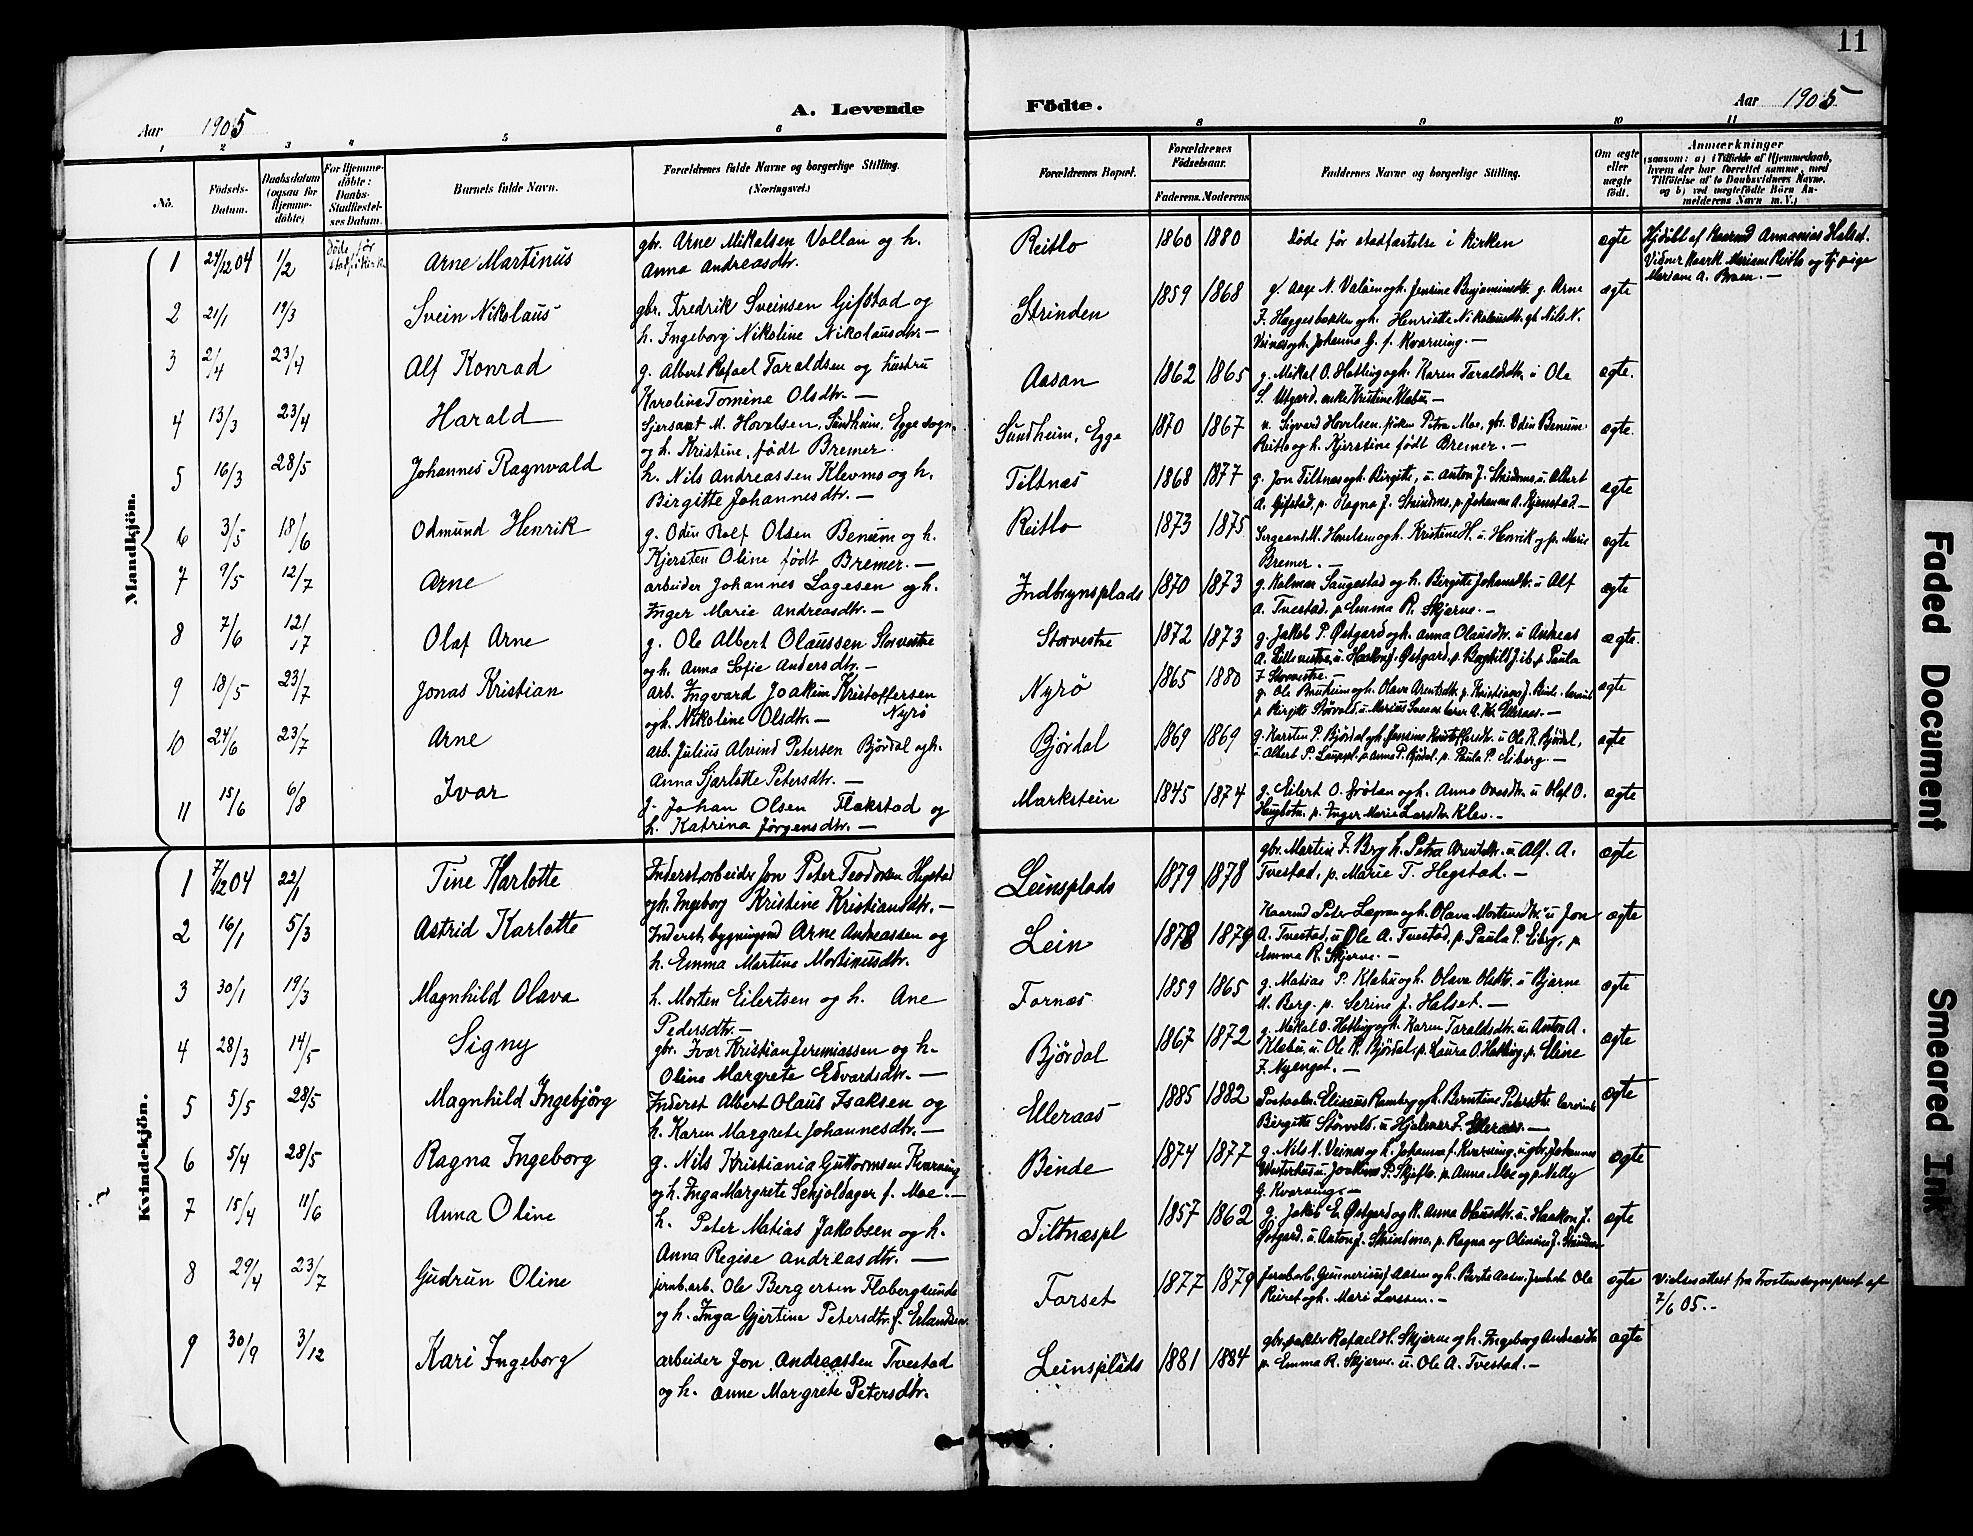 11
Aar 1905
A. Levende Födte.
Aar 1905
1 2 3 4 5 6 8 9 10 11
No.
Födsels-Datum.
Daabsdatum (ogsaa for Hjemme-döbte)
For Hjemme-döbte: Daabs Stadfæstel-ses Datum.
Barnets fulde Navn.
Forældrenes fulde Navne og borgerlige Stilling. (Næringsvei.)
Forældrenes Bopæl.
Forældrenes Födselsaar.
Faderens. Moderens
Fadderenes Navne og borgerlige Stilling.
Om ægte eller uægte födt.
Anmærkninger
(saasom: a) i Tilfælde af Hjemmedaab, hvem der har forrettet samme, med Tilföielse af to Daabsvidners Navne, og b) ved uægtefödte Börn An-melderens Navn m. V.)
Mandkjön.
1 27/12 04 1/2 Döde før Arne Martinus gbr. Arne Mikalsen Vollan og h.
Anna Andreasdtr. Reitlo 1860 1880 Døde før stadfæstelse i kirken ægte Hjdöbt af Kaarmd Annanias Halset.
Vidner Kaark Meriam Reitlo og tj. pige
Meriam A. Braen. —
2 21/1 19/3 Svein Nikolaus gbr. Fredrik Sveinsen Gifstad og
h. Ingeborg Nikoline Nikolausdtr. — Strinden 1859 1868 g/ Aage N. Valöen og h. Jensine Benjaminsdtr. g. Arne
F. Haggesbakken og h. Henriette Nikolausdtr. gb. Nils N.
Veines og h. Johanna G. f. Kvarning. — ægte
3 2/4 23/4 Alf Konrad g. Albert Rafael Taraldsen og hustru
Karoline Tomine Olsdtr. — Aasan 1862 1865 g. Mikal O. Hatling og h. Karen Taraldsdtr. u Ole
S. Utgard. enke Kristine Klabu — ægte.
4 13/3 23/4 Harald Sjersant M. Hovelsen, Sundheim, Egge sogn
og h. Kristine, født Bremer. Sundheim, Egge 1870 1867 u. Sigvard Hovelsen, frøken Petra Moe, gbr. Odin Benum
Reitlo og h. Kjerstine født Bremer. — ægte.
5 16/3 28/5 Johannes Ragnvald h. Nils Andreassen Klevmo og h.
Birgitte Johannesdtr. — Tiltnæs 1868 1877 g. Jon Tiltnæs og h. Birgitte, u. Anton J. Strindmo u. Albert
A. Gifstad, p. Ragna J. Strindmo, p. Johanna A. Kjenstad — ægte
6 3/5 18/6 Odmund Henrik g. Odin Rolf Olsen Benum og h.
Kjersten Oline født Bremer. — Reitlo 1873 1875 Sergeant M. Hovelsen og h. Kristine H. u. Henrik og p. Marie
Bremer. — ægte
7 9/5 12/7 Arne arbeider Johannes Lagesen og h.
Inger Marie Andreasdtr. — Indbrynsplads 1870 1873 g. Kalmar Saugestad og h. Birgitte Johansdtr. u Alf
A. Tvestad. p Emma R. Skjerve. — ægte
8 7/6 12/7 Olaf Arne g. Ole Albert Olaussen Storvestre
og h. Anna Sofie Andersdtr. — Storvestre 1872 1873 g. Jakob P. Østgard og h. Anna Olausdtr. u Andreas
A. Lillevestre, u. Haakon J. Østgard, p. Borghild J. ib., p. Paula
F. Storvestre. — ægte.
9 18/5 23/7 Jonas Kristian arb. Ingvard Joakim Kristoffersen
og h. Nikoline Olsdtr. — Nyrø Nyrø 1865 1880 g. Ole Bruheim og h. Olava Arentsdtr. p. Kristiane J. Binde
p. Birgitte Storvold. u Marius A. Kr. Elleraas. — ægte
10 24/6 23/7 Arne arb. Julius Alvind Petersen Bjørdal og h.
Anna Sjarlotte Petersdtr. — Bjørdal 1869 1869 g. Karsten P. Bjørdal og h. Jensine Kristoffersdtr. u Ole R. Bjørdal,
u Albert P. p Anna P. Bjørdal. p. Paula P. Eiberg. — ægte
11 15/6 6/8 Ivar g. Johan Olsen Flakstad og
h. Katrina Jørgensdtr. — Markstein 1845 1874 g. Eilert O. Svølan og h. Anna Ovesdtr. u Olaf O.
Haugbotn. p. Inger Marie Larsdtr. Klev. — ægte
Kvindekjön.
1 7/12 04 22/1 Tine Karlotte Inderst arbeider Jon Peter Teodorsen Hegstad
og h. Ingeborg Kristine Kristiansdtr. — Leinsplads 1879 1878 gbr. Martin F. Bry h. Petra Arentsdtr. u Alf. A.
Tvestad, p. Marie T. Hegstad. — ægte
2 16/1 5/3 Astrid Karlotte Inderst, bygningsmd Arne Andreassen og
h. Emma Martine Mortinusdtr. Lein 1878 1879 Kaarmd Peter Lægran og h. Olava Mortensdtr. u Jon
A. Tvestad, u Ole A. Tvestad, p. Paula P. Eiberg, p
Emma R. Skjerve. — ægte
3 30/1 19/3 Magnhild Olava h. Morten Eilertsen og h. Ane
Pedersdtr. — Fornæs 1859 1865 g. Matias P. Klabu og h. Olava Olsdtr. u Bjarne
M. Berg. p. Serine J. Halset. — ægte
4 28/3 14/5 Signy gbr. Ivar Kristian Jeremiassen og h.
Oline Margrete Edvardsdtr. — Bjørdal 1867 1872 g. Mikal O. Hatling og h. Karen Taraldsdtr. u. Anton A.
Klabu, u. Ole R. Bjørdal, p. Laura O. Hatling, p. Eline
F. Nyenget. — ægte
5 5/5 28/5 Magnhild Ingebjörg Inderst Albert Olaus Isaksen og
h. Karen Margrete Johannesdtr. — Elleraas 1885 1882 Postaabn. Eliseus Ramberg og h. Berntine Petersdtr. lærerinde
Birgitte Storvold. u Hjalmar F. Elleraas. — ægte
6 5/4 28/5 Ragna Ingeborg g. Nils Kristiania Guttormsen Kvarning
og h. Inga Margrete Schjoldager f. Moe. — Binde 1874 1877 g. Nils N. Veines og h. Johanna f. Kvarning, u gbr. Johannes
Westerhus u Joakim P. Skjeflo. p. Anna Moe og p. Nelly
G. Kvarning. — ægte
7 15/4 11/6 Anna Oline h. Peter Matias Jakobsen og h.
Anna Regise Andreasdtr. — Tiltnæspl 1857 1862 g. Jakob E. Østgard og h. Anna Olausdtr. u. Haakon J.
Østgard. u Anton J. Strindmo, p. Ragna og Olivine J. Strindmo ægte
8 29/4 23/7 Gudrun Oline jernb.arb. Ole Bergersen Floberg sunde
og h. Inga Gjertine Petersdtr. f. Erlandsen. Forset 1877 1879 Jernbarb. Gunnerius J. Aasen og h. Berte Aasen, Jernbarb Ole
Reiret og h. Mari Larssen. — ægte Vielsesattest fra Frosten sogneprest af
7/6 05. —
9 30/9 3/12 Kari Ingeborg arbeider Jon Andreassen Tvestad
og h. Anne Margrete Petersdtr. Leinsplads 1881 1884 gbr. Rafael H. Skjerve og h. Ingeborg Andreasdtr
p. Emma R. Skjerve. u. Ole A. Tvestad. — ægte
Faded Document
Smeared Ink